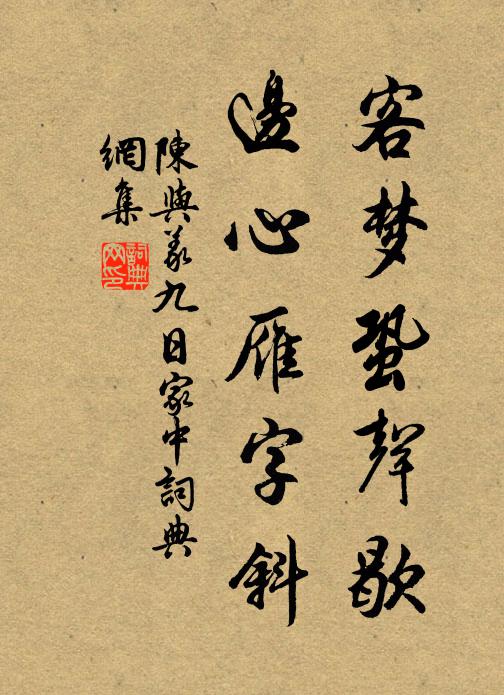 客梦蛩聲歇
邊心雁字斜
陳與義九日家中詞典
網集
詞典
网印